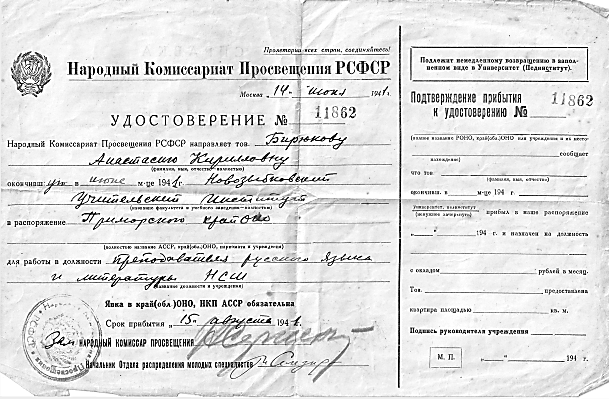 Пролетарии всех стран, соединяйтесь!
Народный Комиссариат Просвещения РСФСР
Москва „14" июня 1941.
УДОСТОВЕРЕНИЕ № 11862
Народный Комиссариат Просвещения РСФСР направляет тов. Бирюкову
Анастасию Кирилловну
(фамилия, имя, отчество полностью)
окончивш ую в июне м-це 1941 г. Новозыбковский
Учительский Институт
(название факультета и учебного заведения полностью)
в распоряжение Приморского крайОНО
(полностью название АССР, край(обл)ОНО, наркомата и учреждения)
для работы в должности преподавателя русского языка
и литературы НСШ
(название должности и учреждения)
Явка в край(обл)ОНО, НКП АССР обязательна
Срок прибытия „15" августа 1941 г.
Зам НАРОДНЫЙ КОМИССАР ПРОСВЕЩЕНИЯ
Начальник Отдела распределения молодых специалистов
Подлежит немедленному возвращению в запол-
ненном виде в Университет (Пединститут).
Подтверждение прибытия
к удостоверению № 11862
(полное название РОНО, край(обл)ОНО или учреждения и их место-
нахождение) сообщает
что тов
(фамилия, имя, отчество)
окончивш. в м-це 194 г.
Университет, пединститут
(ненужное зачеркнуть) прибыл в наше распоряжение
„ " 194 г. и назначен на должность
с окладом рублей в месяц.
Тов. предоставлена
квартира площадью кв. м.
Подпись руководителя учреждения
М. П. „ " 194 г.